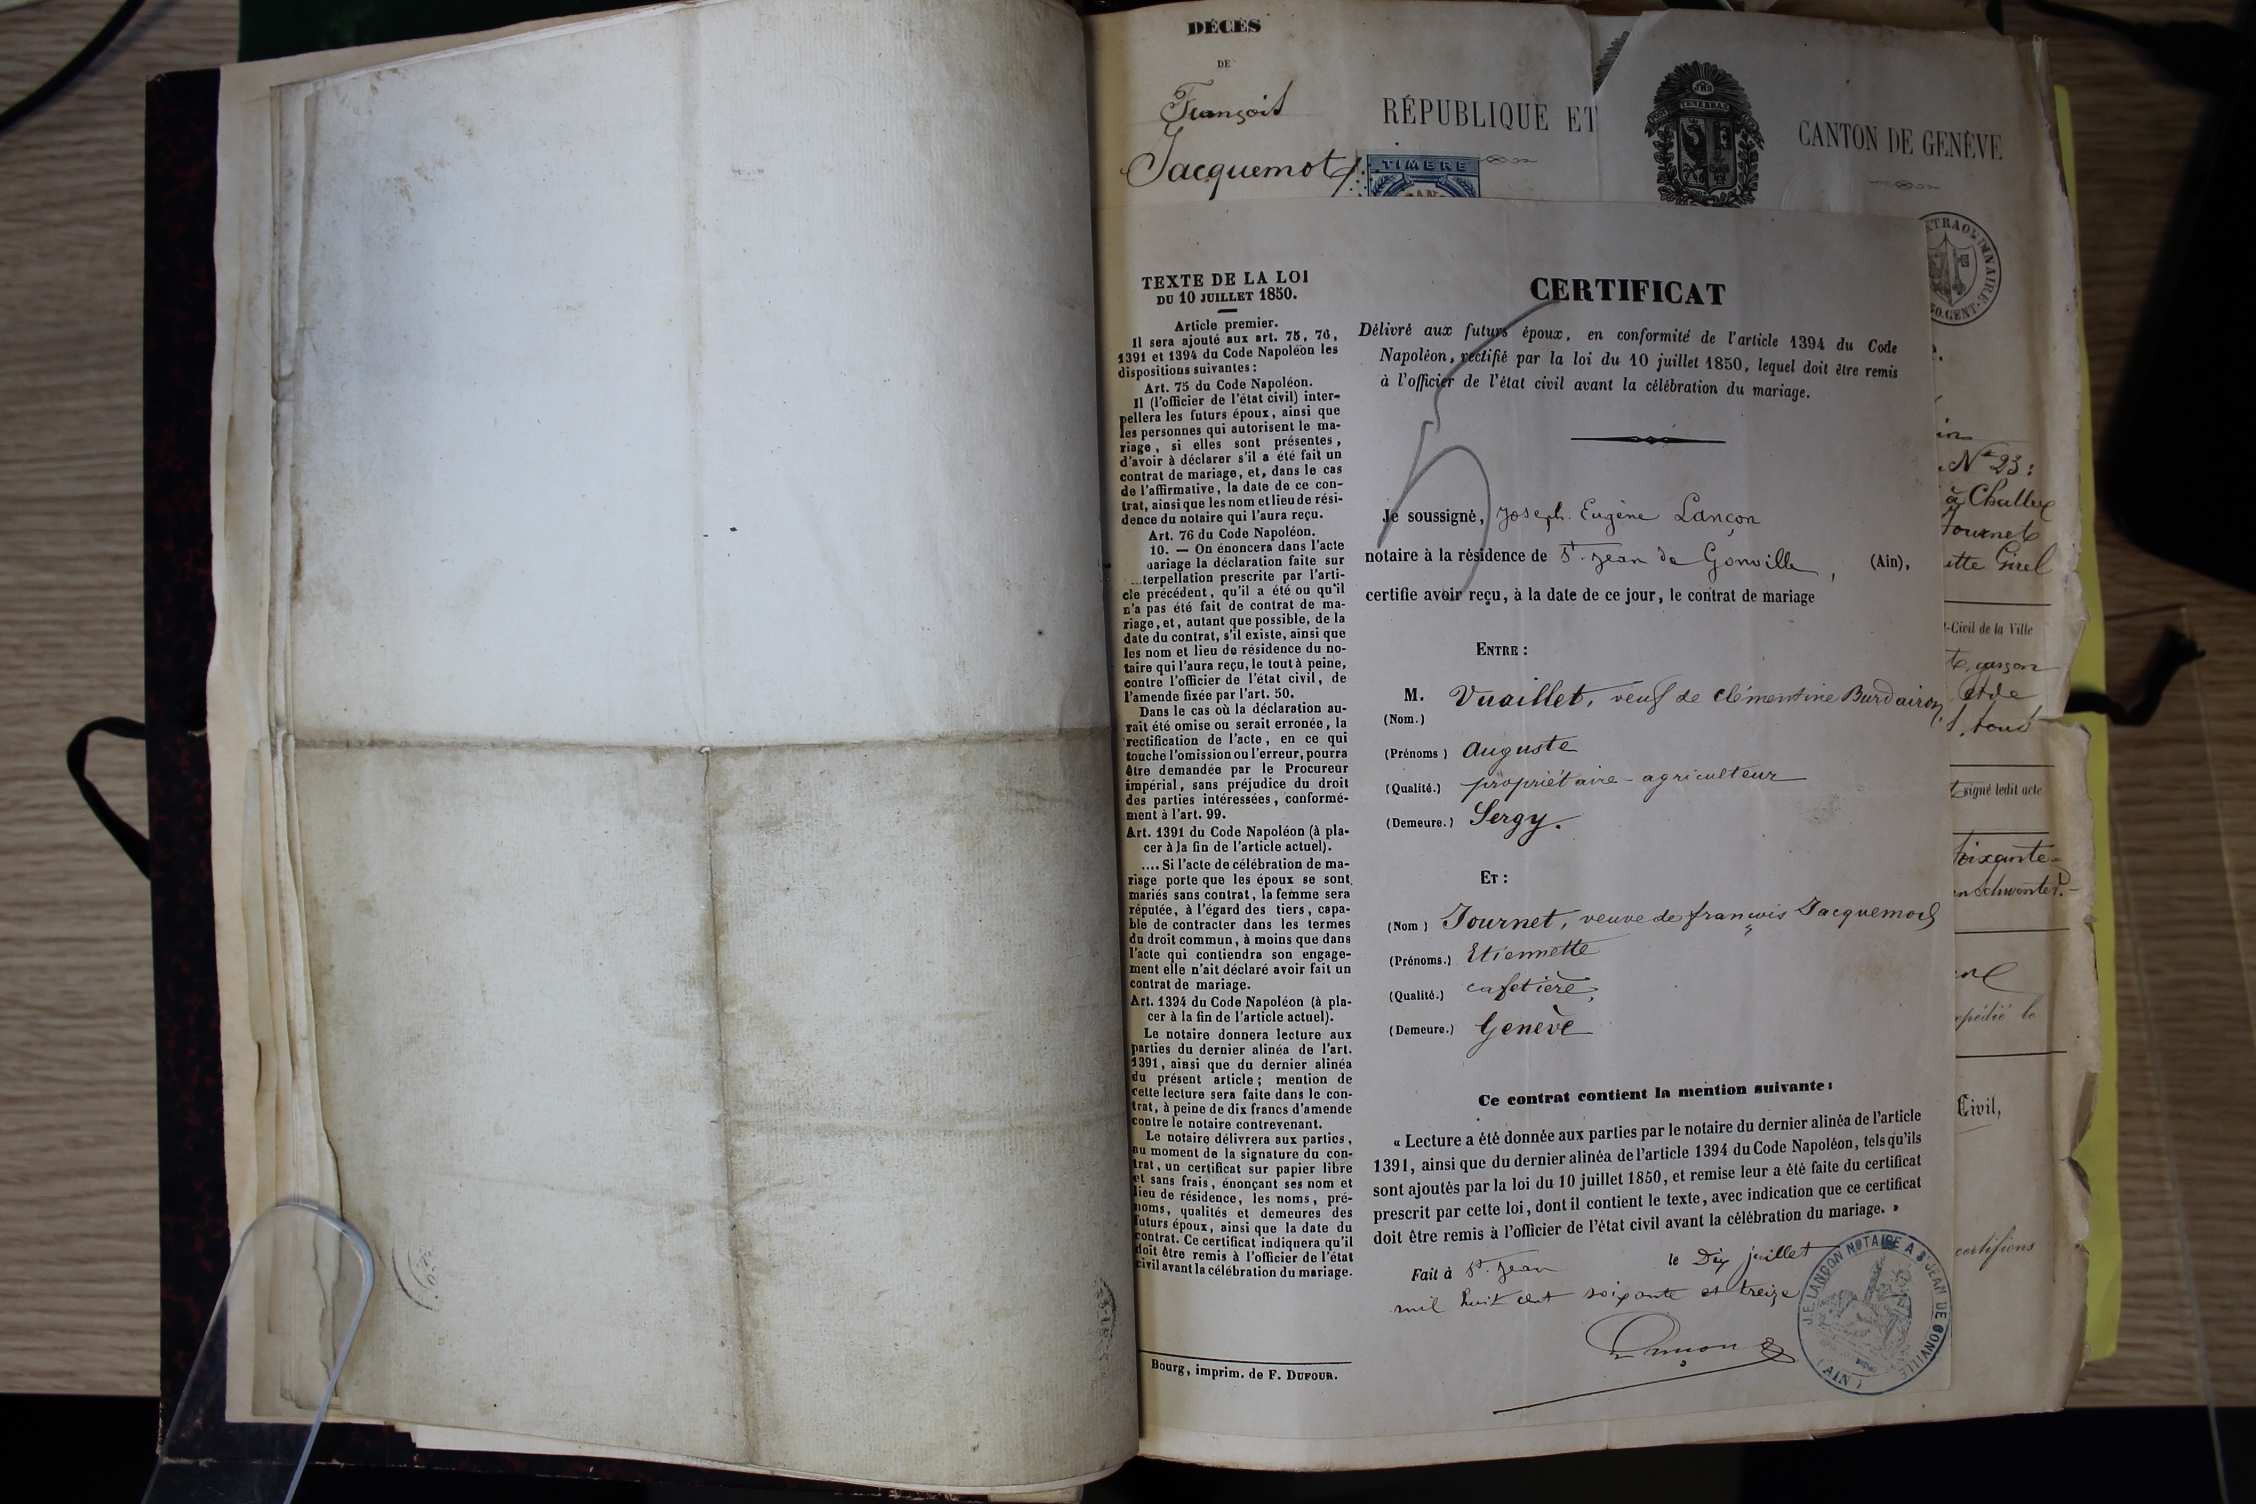 DÉCÈS
DE
François
Jacquemot
RÉPUBLIQUE ET
CANTON DE GENÈVE
TIMBRE
TEXTE DE LA LOI
DU 10 JUILLET 1850.
Article premier.
Il sera ajouté aux art. 75, 76,
1391 et 1394 du Code Napoléon les
dispositions suivantes :
Art. 75 du Code Napoléon.
Il (l'officier de l'état civil) inter-
pellera les futurs époux, ainsi que
les personnes qui autorisent le ma-
riage, si elles sont présentes,
d'avoir à déclarer s'il a été fait un
contrat de mariage, et, dans le cas
de l'affirmative, la date de ce con-
trat, ainsi que les nom et lieu de rési-
dence du notaire qui l'aura reçu.
Art. 76 du Code Napoléon.
10. — On énoncera dans l'acte
mariage la déclaration faite sur
terpellation prescrite par l'arti-
cle précédent, qu'il a été ou qu'il
n'a pas été fait de contrat de ma-
riage, et, autant que possible, de la
date du contrat, s'il existe, ainsi que
les nom et lieu de résidence du no-
taire qui l'aura reçu, le tout à peine,
contre l'officier de l'état civil, de
l'amende fixée par l'art. 50.
Dans le cas où la déclaration au-
rait été omise ou serait erronée, la
rectification de l'acte, en ce qui
touche l'omission ou l'erreur, pourra
être demandée par le Procureur
impérial, sans préjudice du droit
des parties intéressées, conformé-
ment à l'art. 99.
Art. 1391 du Code Napoléon (à pla-
cer à la fin de l'article actuel).
.... Si l'acte de célébration de ma-
riage porte que les époux se sont
mariés sans contrat, la femme sera
réputée, à l'égard des tiers, capa-
ble de contracter dans les termes
du droit commun, à moins que dans
l'acte qui contiendra son engage-
ment elle n'ait déclaré avoir fait un
contrat de mariage.
Art. 1394 du Code Napoléon (à pla-
cer à la fin de l'article actuel).
Le notaire donnera lecture aux
parties du dernier alinéa de l'art.
1391, ainsi que du dernier alinéa
du présent article; mention de
cette lecture sera faite dans le con-
trat, à peine de dix francs d'amende
contre le notaire contrevenant.
Le notaire délivrera aux parties,
au moment de la signature du con-
trat, un certificat sur papier libre
et sans frais, énonçant ses nom et
lieu de résidence, les noms, pré-
noms, qualités et demeures des
futurs époux, ainsi que la date du
contrat. Ce certificat indiquera qu'il
doit être remis à l'officier de l'état
civil avant la célébration du mariage.
Bourg, imprim. de F. DUFOUR.
CERTIFICAT
Délivré aux futurs époux, en conformité de l'article 1394 du Code
Napoléon, rectifié par la loi du 10 juillet 1850, lequel doit être remis
à l'officier de l'état civil avant la célébration du mariage.
Je soussigné, Joseph Eugène Lançon
notaire à la résidence de St. Jean de Gonville, (Ain),
certifie avoir reçu, à la date de ce jour, le contrat de mariage
ENTRE :
M. Vuaillet, veuf de Clémentine Burdairon,
(Nom.)
(Prénoms) Auguste
(Qualité.) propriétaire-agriculteur
(Demeure.) Sergy.
ET :
(Nom) Journet, veuve de françois Jacquemot
(Prénoms.) Etiennette
(Qualité.) cafetière,
(Demeure.) Genève
Ce contrat contient la mention suivante :
« Lecture a été donnée aux parties par le notaire du dernier alinéa de l'article
1391, ainsi que du dernier alinéa de l'article 1394 du Code Napoléon, tels qu'ils
sont ajoutés par la loi du 10 juillet 1850, et remise leur a été faite du certificat
prescrit par cette loi, dont il contient le texte, avec indication que ce certificat
doit être remis à l'officier de l'état civil avant la célébration du mariage. »
Fait à St. Jean le Dix juillet
mil huit cent soixante et treize
Lançon
J. E. LANÇON NOTAIRE A St JEAN DE GONVILLE
(AIN)
No 23 :
à Challex
Journet
ette Girel
-Civil de la Ville
garçon
et de
tous
signé ledit acte
soixante-
expédié le
Civil,
certifions